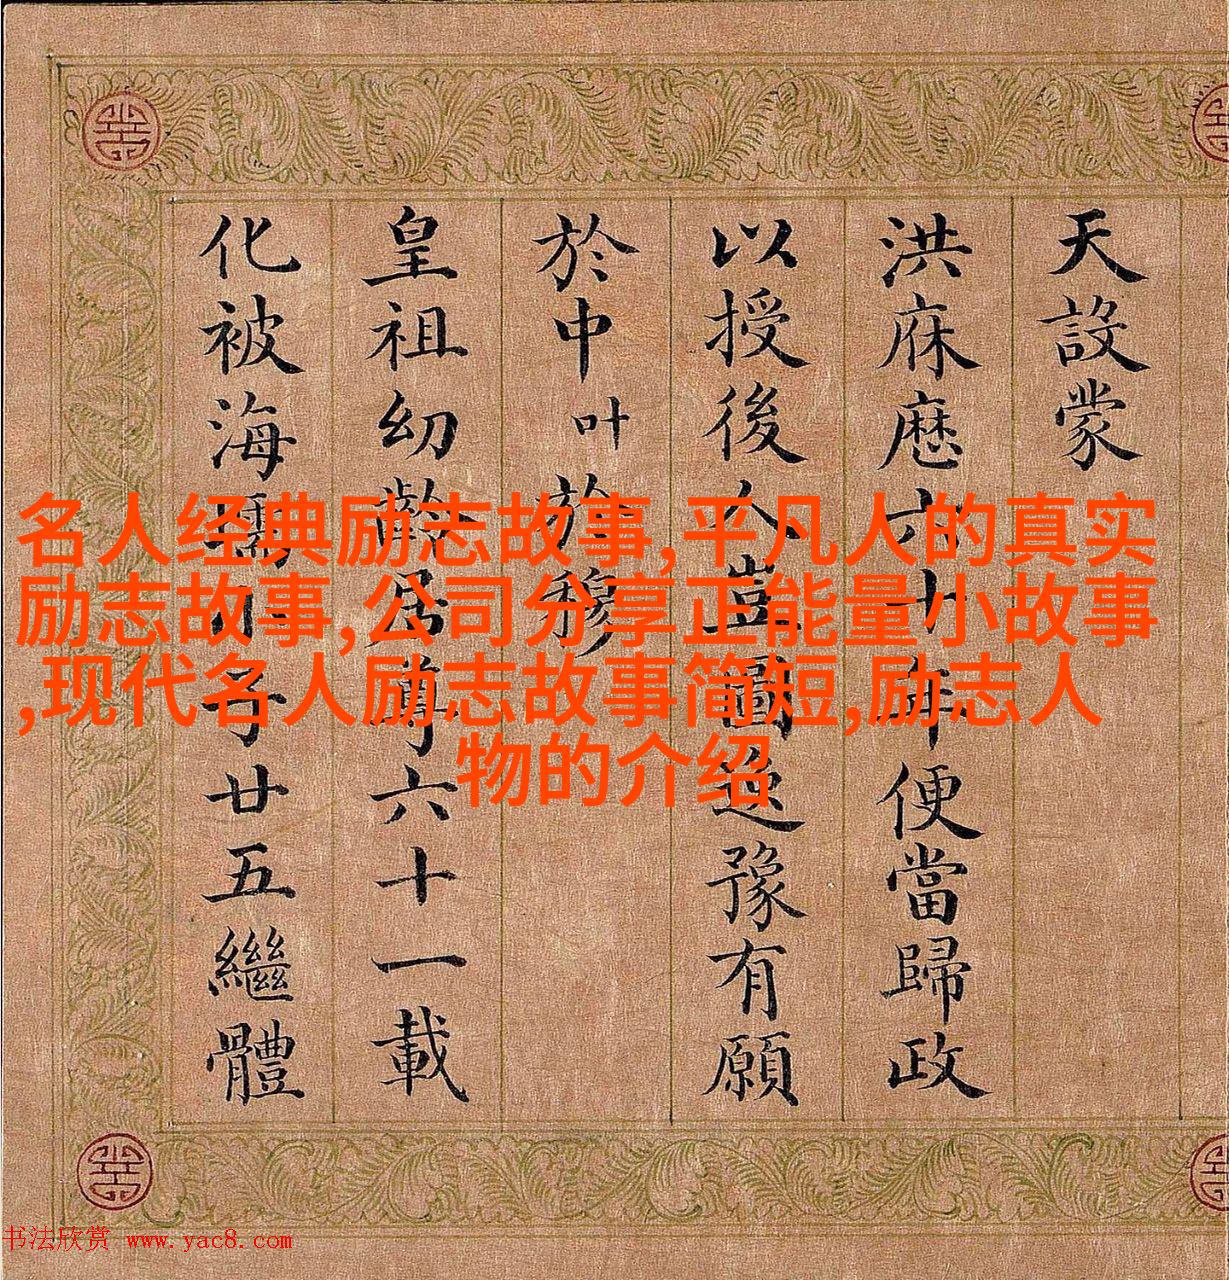 天設蒙
洪庥厯六十年便當歸政
以授後人豈圖逸豫有願
於中叶於穆
皇祖幼齡居尊六十一載
化被海子廿五繼體
名人经典励志故事,平凡人的真实
励志故事,公司分享正能量小故事
,现代名人励志故事简短,励志人
物的介绍
书法欣赏 www.yac8.com